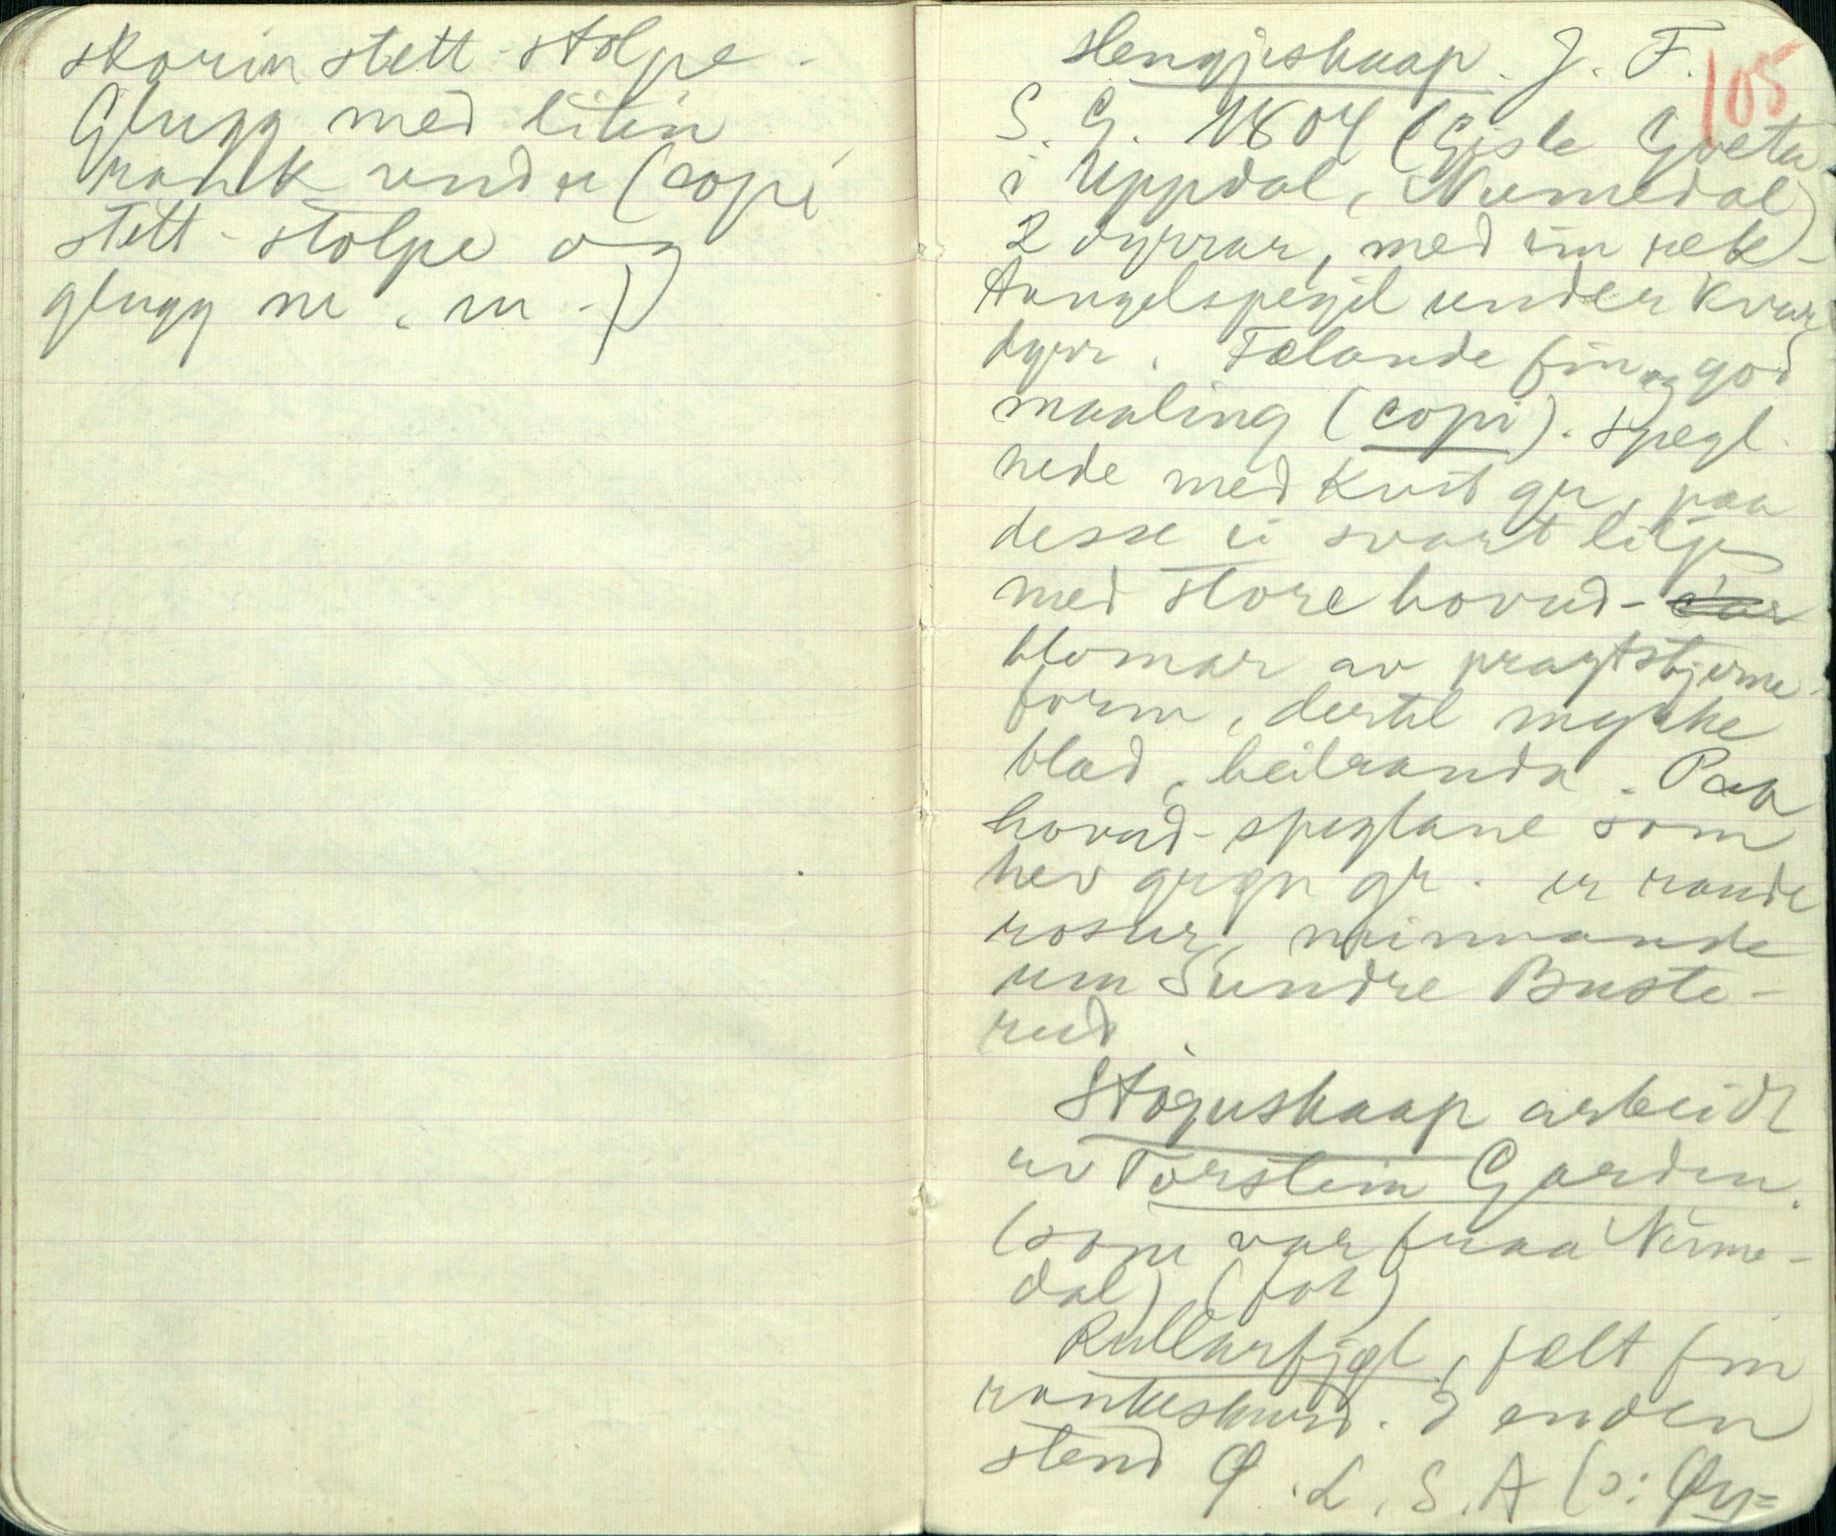 skorin stett-stolpe -
Glugg med litin
rank under (copi
stett-stolpe og
glugg m. m -)
105
Hengjeskaap. J. F.
S. G. 1804 (Gisle
i Uppdal, Numedal)
2 dyrrar, med ein rek-
tangelspegil under kvar
dyrr. Fælande fin og god
maaling (copi). Spegl.
nede med kvit gr, paa
desse ei svart lilje
med store hovud-
blomar av pragtstjerne-
form, dertil mykke
blad, heilranda. Paa
hovud-speglane som
hev grøn gr. er raude
rosur, minnande
um Sundre Buste-
rud.
Stoguskaap arbeidt
av Torstein Garden.
(som var fraa Nume-
dal) (fot)
Rullarfjøl, fælt fin
rankeskurd. I enden
stend Ø. L. S. A (ɔ: Øy=